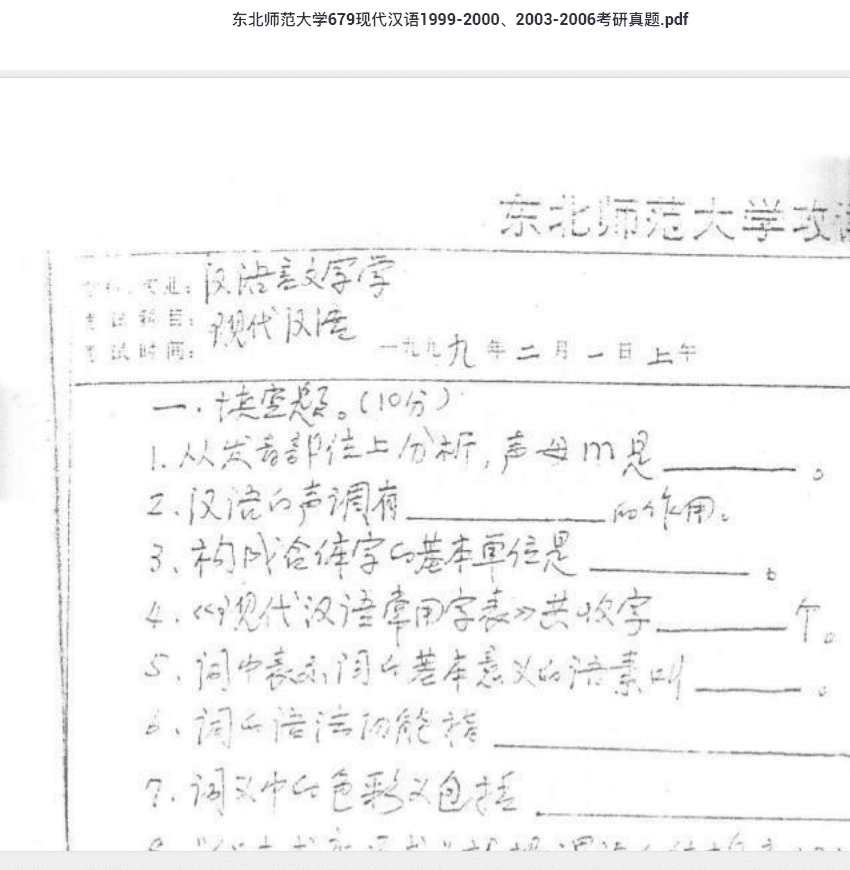 东北师范大学679现代汉语1999-2000、2003-2006考研真题.pdf
东北师范大学攻
专业：汉语言文字学
考试科目：现代汉语
考试时间：一九九九年二月一日上午
一.填空题。(10分)
1.从发音部位上分析,声母m是______。
2、汉语的声调有______的作用。
3、构成合体字的基本单位是______。
4、《现代汉语常用字表》共收字______个。
5、词中表示词的基本意义的语素叫______。
6、词的语法功能指______
7、词义中的色彩义包括______